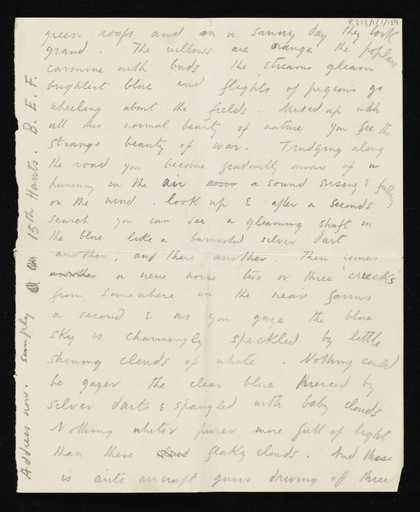 green roofs and on a sunny day they look
grand. The willows are orange the poplars
carmine with buds the streams gleam
brightest blue and flights of pigeons go
wheeling about the fields. Mixed up with
all this normal beauty of nature you see the
strange beauty of war. Trudging along
the road you become gradually aware of a
humming in the air a sound rising & falling
on the wind. look up & after a seconds
search you can see a gleaming shaft in
the blue like a burnished silver dart
another, and then another. Then comes
a new noise two or three 'cracks'
from somewhere in the near farms
a second & as you gaze the blue
sky is charmingly speckled by little
shining clouds of white. Nothing could
be gayer the clear blue pierced by
silver darts & spangled with baby clouds
Nothing whiter purer more full of light
than these flaky clouds. And these
is anti aircraft guns driving off three
Address now. simply 15th Hants. B.E.F.